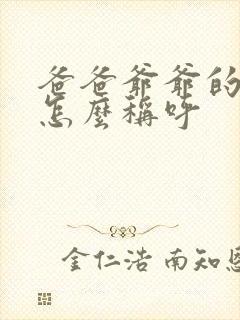 爸爸爷爷的
怎麼稱呼
金仁浩 南知恩